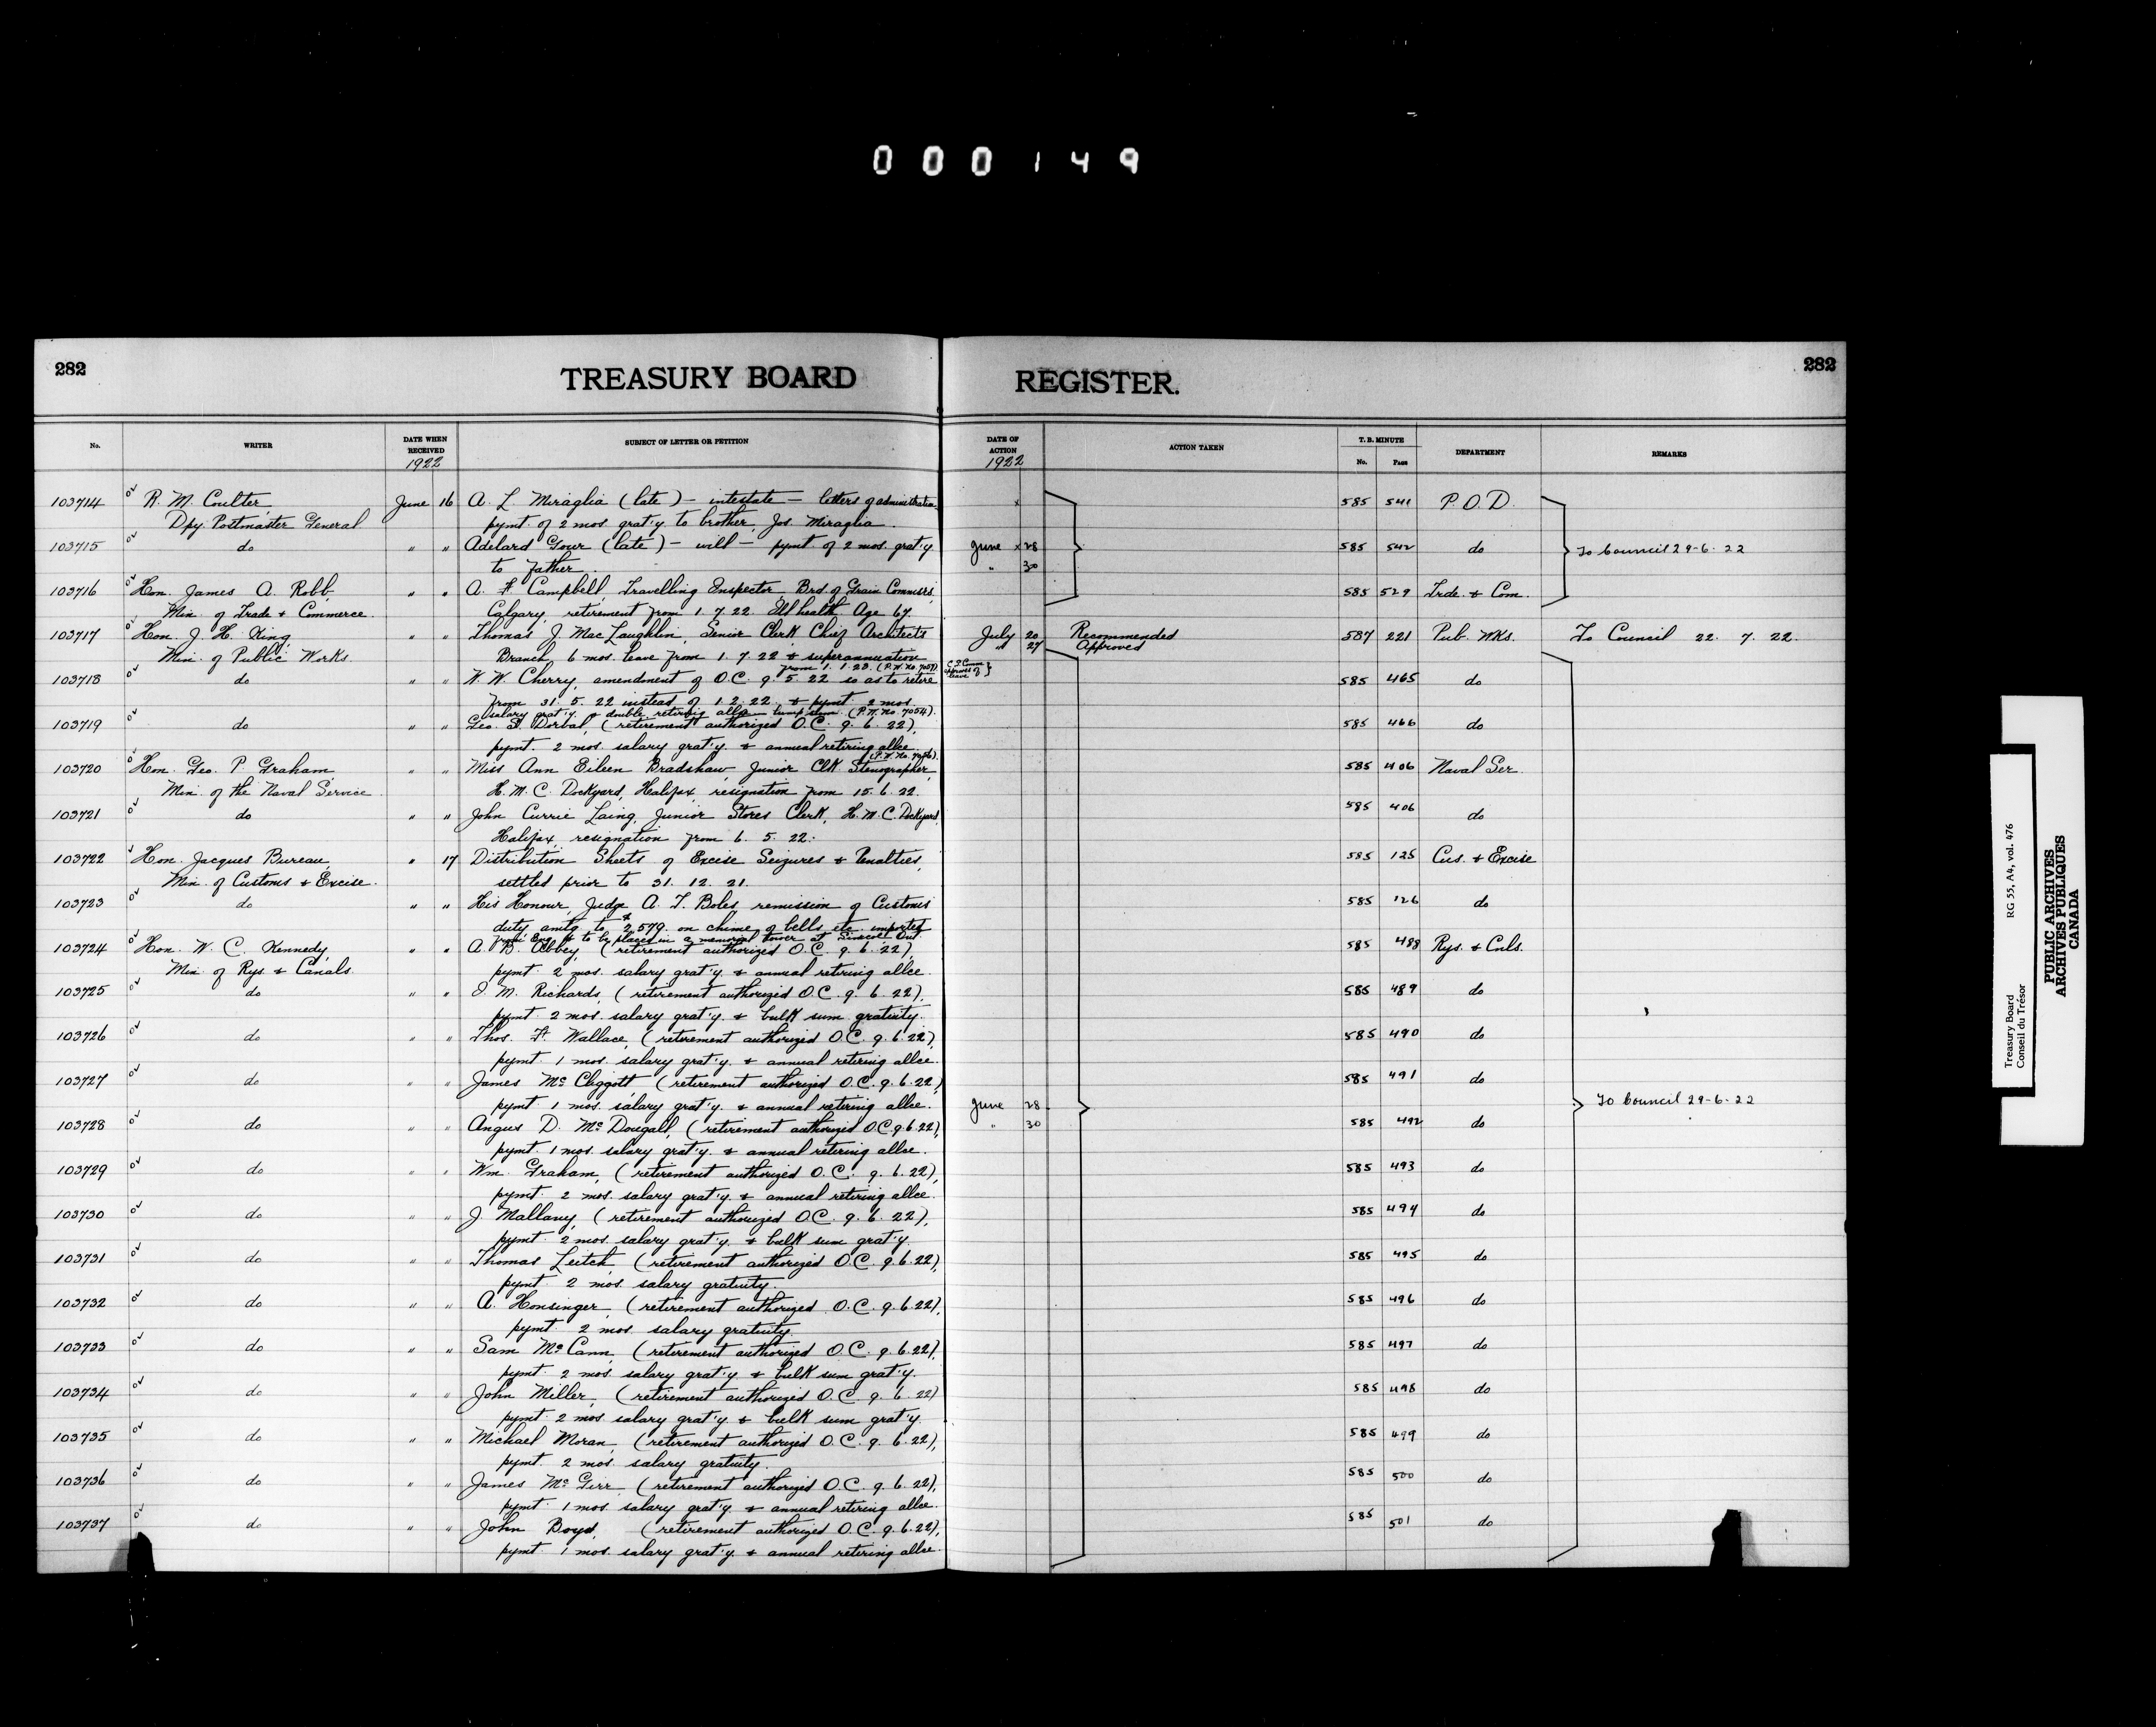 000149
282
TREASURY BOARD
REGISTER.
282
No.
WRITER
DATE WHEN RECEIVED
1922
SUBJECT OF LETTER OR PETITION
DATE OF ACTION
1922
ACTION TAKEN
T. B. MINUTE
No.
PAGE
DEPARTMENT
REMARKS
103714 R. M. Coulter, June 16 A. L. Miraglia (late) - intestate - letters of administration 585 541 P.O.D.
Dpy. Postmaster General pymt. of 2 mos. grat'y to brother, Jos. Miraglia.
103715 do " " Adelard Gour (late) - will - pymt. of 2 mos. grat'y. June 28 585 542 do To Council 29-6-22
to father. " 30
103716 Hon. James A. Robb, " " A. F. Campbell, Travelling Inspector, Brd. of Grain Commsrs, 585 529 Trde. & Com.
Min. of Trade & Commerce. Calgary, retirement from 1.7.22 Ill health Age 67
103717 Hon. J. H. King, " " Thomas J. MacLaughlin, Senior Clerk Chief Architects July 20 Recommended 587 221 Pub. Wks. To Council 22. 7. 22.
Min. of Public Works. Branch, 6 mos. leave from 1.7.22 & superannuation " 27 Approved
from 1.1.23. (P.W. No. 7057) C S Comm approves of leave
103718 do " " W. W. Cherry, amendment of O.C. 9.5.22 so as to retire 585 465 do
from 31.5.22 instead of 1.2.22 & pymt. 2 mos.
salary grat'y & double retiring allce lump sum. (P.W. No. 7054).
103719 do " " Geo. S. Dorbal, (retirement authorized O.C. 9.6.22), 585 466 do
pymt. 2 mos. salary grat'y. & annual retiring allce.
(P.W. No. 7056).
103720 Hon. Geo. P. Graham, " " Miss Ann Eileen Bradshaw, Junior Clk Stenographer, 585 406 Naval Ser.
Min. of the Naval Service. H.M.C. Dockyard, Halifax, resignation from 15.6.22.
103721 do " " John Currie Laing, Junior Stores Clerk, H.M.C. Dockyard, 585 406 do
Halifax, resignation from 6.5.22.
103722 Hon. Jacques Bureau, " 17 Distribution Sheets of Excise Seizures & Penalties, 585 125 Cus. & Excise
Min. of Customs & Excise. settled prior to 31.12.21.
103723 do " " His Honour, Judge A. T. Boles, remission of Customs 585 126 do
duty amtg to $2,579. on chime of bells etc. imported
from Eng. & to be placed in a memorial tower at Simcoe Ont.
103724 Hon. W. C. Kennedy, " " A. B. Abbey, (retirement authorized O.C. 9.6.22), 585 488 Rys. & Cnls.
Min. of Rys. & Canals. pymt. 2 mos. salary grat'y. & annual retiring allce.
103725 do " " I. M. Richards, (retirement authorized O.C. 9.6.22), 585 489 do
pymt. 2 mos. salary grat'y. & bulk sum gratuity.
103726 do " " Thos. F. Wallace, (retirement authorized O.C. 9.6.22), 585 490 do
pymt. 1 mos. salary grat'y. & annual retiring allce.
103727 do " " James McCliggott (retirement authorized O.C. 9.6.22) 585 491 do
pymt. 1 mos. salary grat'y. & annual retiring allce. June 28 To Council 29-6-22
103728 do " " Angus D. McDougall, (retirement authorized O.C. 9.6.22), " 30 585 492 do
pymt. 1 mos. salary grat'y. & annual retiring allce.
103729 do " " Wm. Graham, (retirement authorized O.C. 9.6.22), 585 493 do
pymt. 2 mos. salary grat'y. & annual retiring allce.
103730 do " " J. Mallany, (retirement authorized O.C. 9.6.22), 585 494 do
pymt. 2 mos. salary grat'y. & bulk sum grat'y.
103731 do " " Thomas Leitch, (retirement authorized O.C. 9.6.22), 585 495 do
pymt. 2 mos. salary gratuity.
103732 do " " A. Honsinger, (retirement authorized O.C. 9.6.22), 585 496 do
pymt. 2 mos. salary gratuity.
103733 do " " Sam McCann, (retirement authorized O.C. 9.6.22), 585 497 do
pymt. 2 mos. salary grat'y & bulk sum grat'y.
103734 do " " John Miller, (retirement authorized O.C. 9.6.22) 585 498 do
pymt. 2 mos. salary grat'y & bulk sum grat'y.
103735 do " " Michael Moran, (retirement authorized O.C. 9.6.22), 585 499 do
pymt. 2 mos. salary gratuity.
103736 do " " James McGirr (retirement authorized O.C. 9.6.22), 585 500 do
pymt. 1 mos. salary grat'y & annual retiring allce.
103737 do " " John Boyd, (retirement authorized O.C. 9.6.22), 585 501 do
pymt. 1 mos. salary grat'y. & annual retiring allce.
Treasury Board RG 55, A4, vol. 476
Conseil du Trésor
PUBLIC ARCHIVES
ARCHIVES PUBLIQUES
CANADA